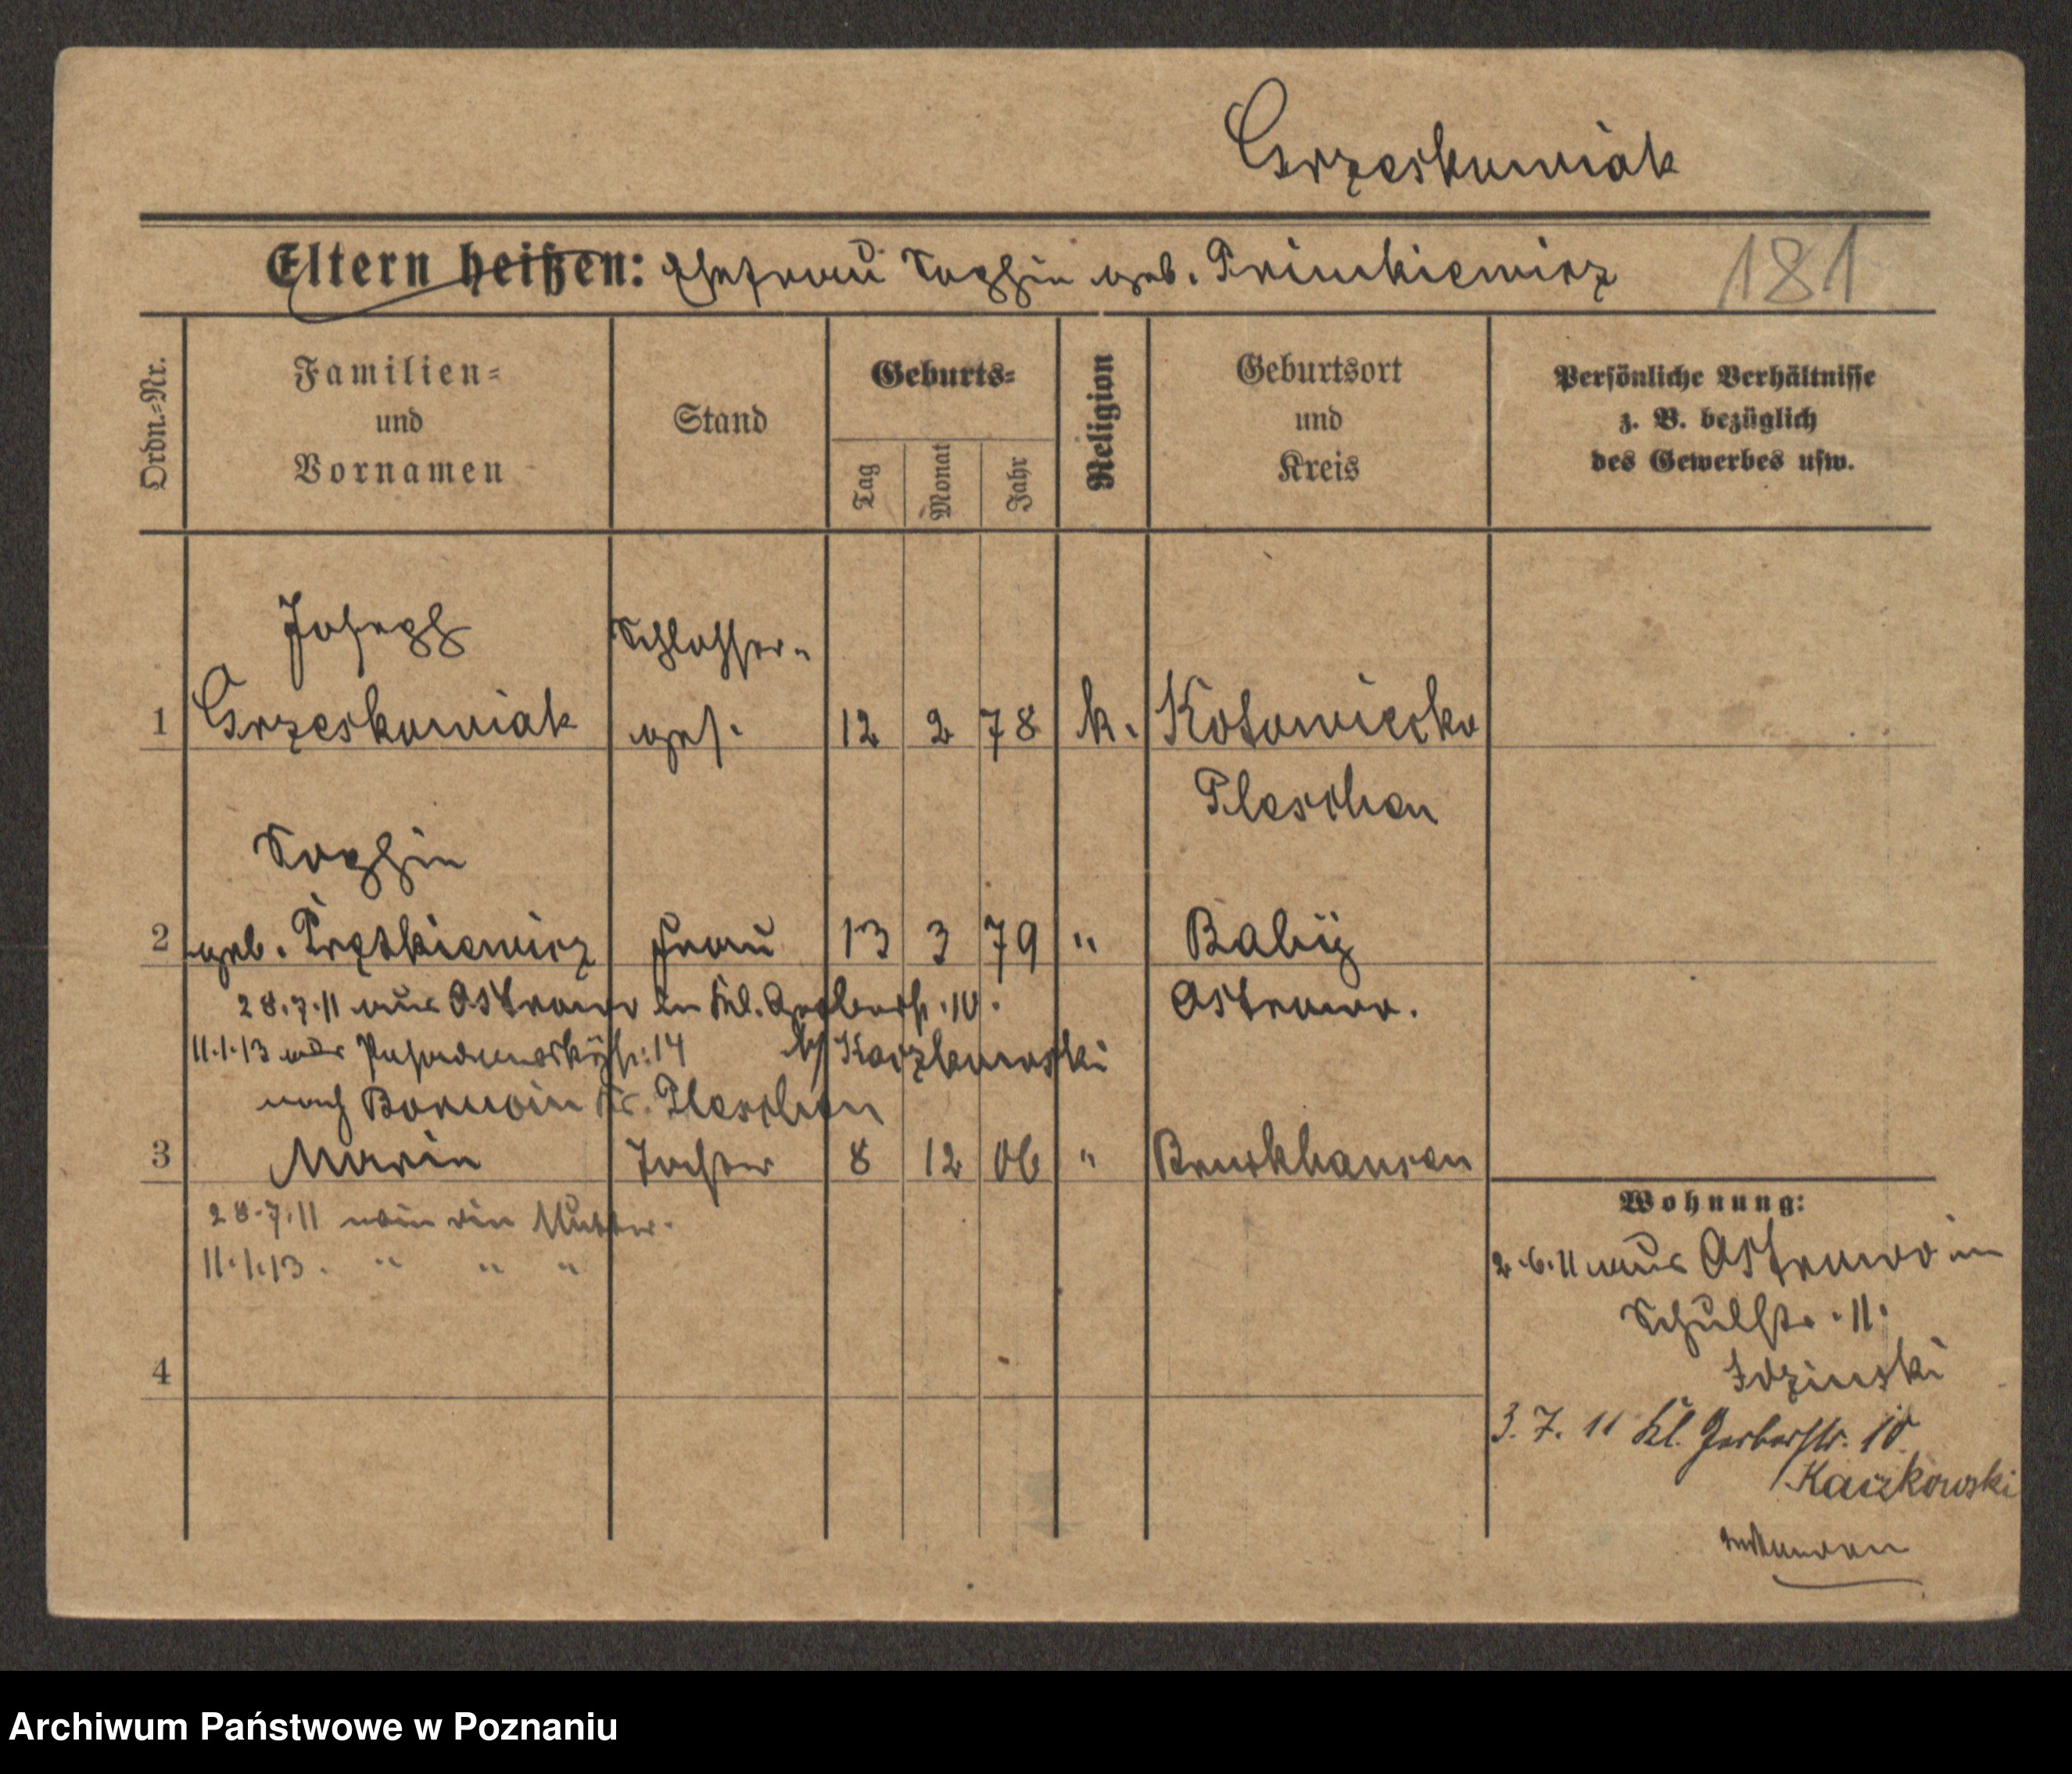 Grzeskowiak
Eltern heißen: Ehefrau Sophie geb. Primkiewicz 181
Ordn.-Nr.
Familien-
und
Vornamen
Stand
Geburts-
Tag
Monat
Jahr
Religion
Geburtsort
und
Kreis
Persönliche Verhältnisse
z. B. bezüglich
des Gewerbes usw.
Joseph Schlosser-
1 Grzeskowiak ges. 12 2 78 k. Kotowiecko
Pleschen
Sophie
2 geb. Frau 13 3 79 " Baby
28.7.11 aus Ostrowo in Kl. Gerberstr. 10. Ostrowo.
11.1.13 von 14 bei Kaczkowski
nach Kr. Pleschen
3 Marie Tochter 8 12 06 " Bruckhausen
28.7.11 wie die Mutter.
11.1.13. " " "
4
Wohnung:
2.6.11 aus Ostrowo in
Schulstr. 11.
Idzinski
3. 7. 11 Kl. Gerberstr. 10
Kaczkowski
Archiwum Państwowe w Poznaniu